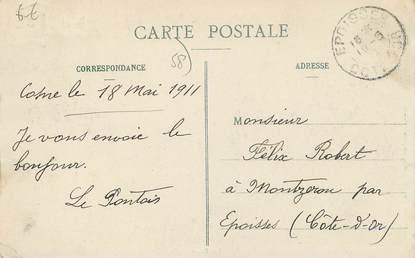 6€
CARTE POSTALE
58
CORRESPONDANCE
ADRESSE
EPOISSES
Cosne le 18 Mai 1911
Je vous envoie le
bonjour.
Le Pontois
Monsieur
Félix Robert
à Montzeron par
Epoisses (Côte-d'or)